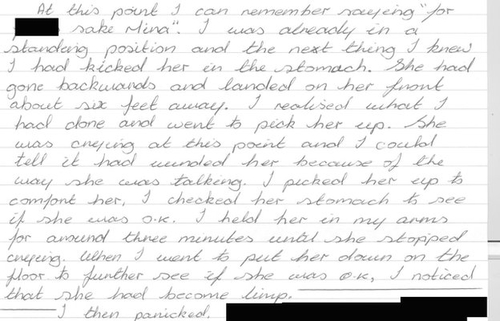 At this point I can remember saying "for
sake Mina". I was already in a
standing position and the next thing I knew
I had kicked her in the stomach. She had
gone backwards and landed on her front
about six feet away. I realised what I
had done and went to pick her up. She
was crying at this point and I could
tell it had winded her because of the
way she was talking. I picked her up to
comfort her, I checked her stomach to see
if she was o.k. I held her in my arms
for around three minutes until she stopped
crying. When I went to put her down on the
floor to further see if she was o.k, I noticed
that she had become limp.
I then panicked.